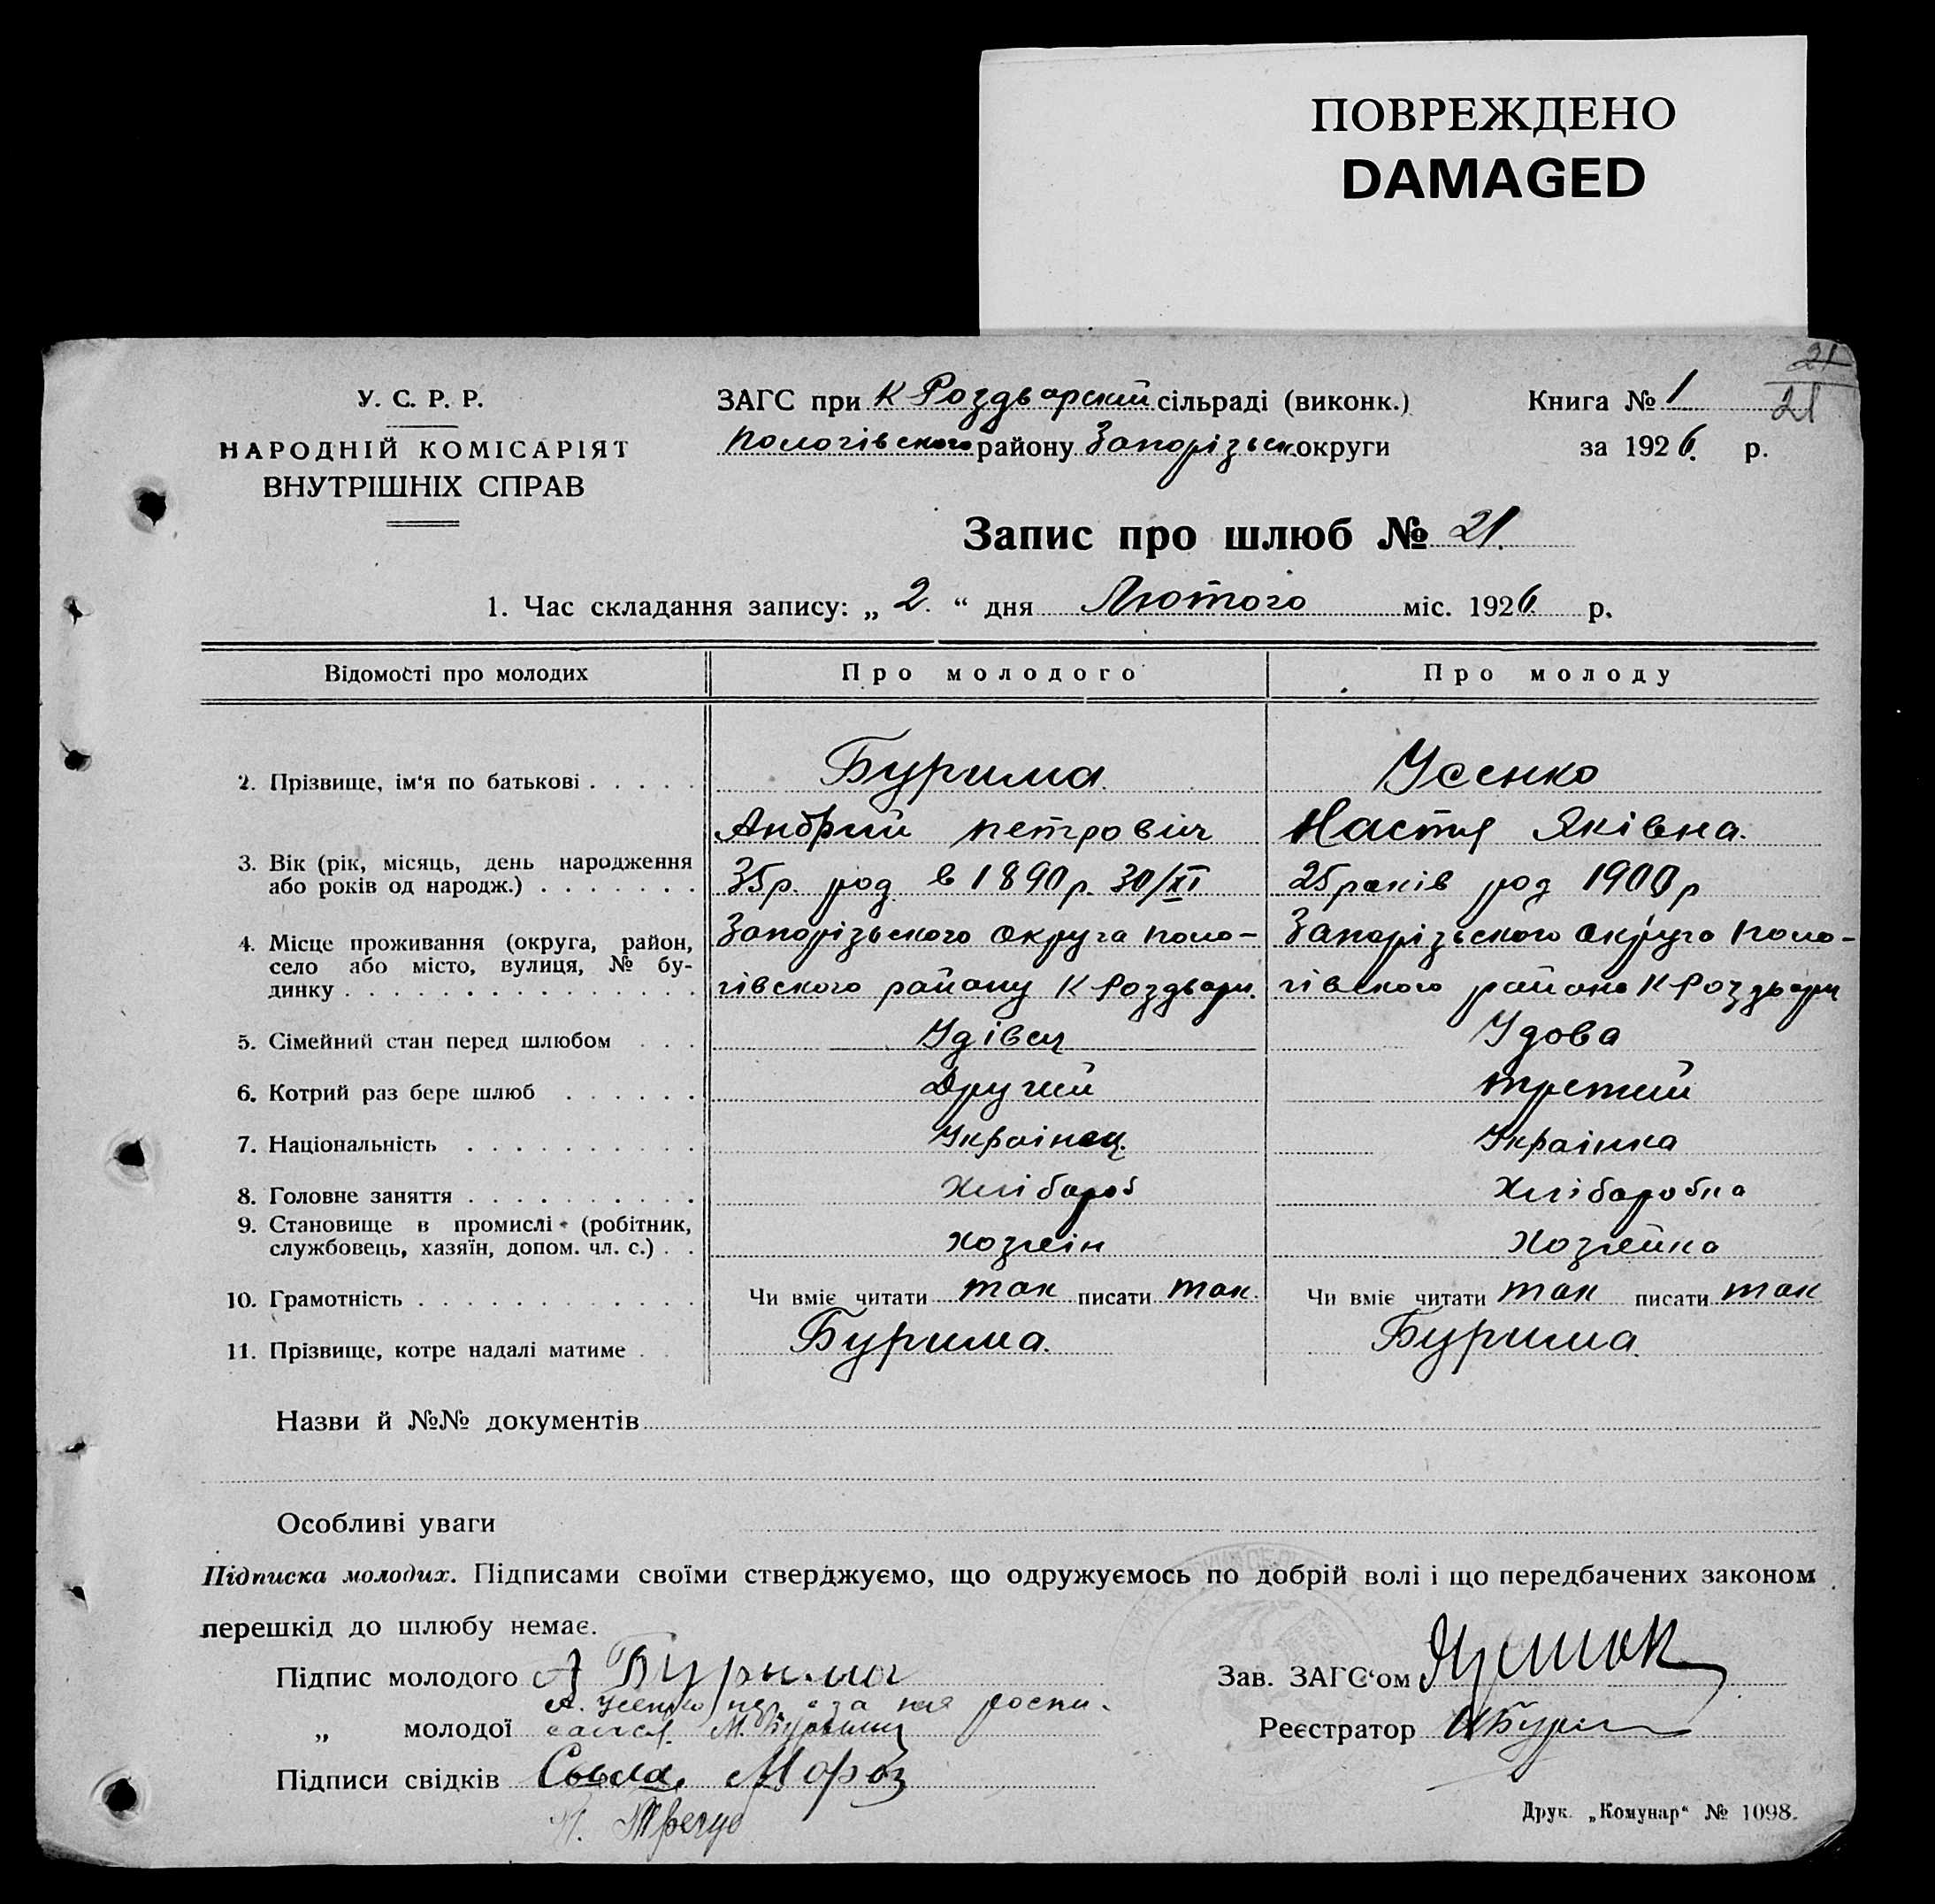 ПОВРЕЖДЕНО
DAMAGED
21
21
У. С. Р. Р.
НАРОДНІЙ КОМІСАРІЯТ
ВНУТРІШНІХ СПРАВ
ЗАГС при К Роздварский сільраді (виконк.)
Пологівського району Запорізьк округи
Книга № 1
за 1926. р.
Запис про шлюб № 21.
1. Час складання запису: „ 2. “ дня Лютого міс. 1926. р.
Відомості про молодих Про молодого Про молоду
2. Прізвище, ім'я по батькові Бурима Усенко
Андрий петрович Настя Яківна.
3. Вік (рік, місяць, день народження
або років од народж.) 35р. род в 1890р. 30/XI 25 раків род 1900р
4. Місце проживання (округа, район,
село або місто, вулиця, № бу-
динку
Запорізьского округа поло-
гівского району К Роздвори.
Запорізьского округа поло-
гівского района К Роздвори
5. Сімейний стан перед шлюбом Удівец Удова
6. Котрий раз бере шлюб Другий третий
7. Національність Украінец. Украінка
8. Головне заняття Хлібароб Хлібаробка
9. Становище в промислі (робітник,
службовець, хазяїн, допом. чл. с.) хозяін хозяйка
10. Грамотність Чи вміє читати так писати так. Чи вміє читати так писати так
11. Прізвище, котре надалі матиме Бурима. Бурима.
Назви й №№ документів
Особливі уваги
Підписка молодих. Підписами своїми стверджуємо, що одружуємось по добрій волі і що передбачених законом
перешкід до шлюбу немає.
Підпис молодого А Бурима
А. Усенко за роспи-
„ молодої сался. М.
Підписи свідків Мороз
Зав. ЗАГС'ом
Реєстратор
Друк. „Комунар“ № 1098.